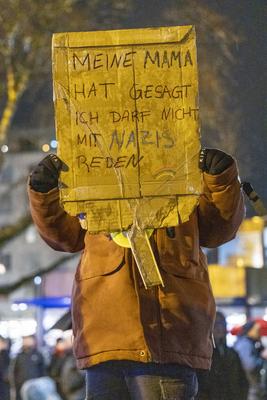 MEINE MAMA
HAT GESAGT
ICH DARF NICHT
MIT NAZIS
REDEN